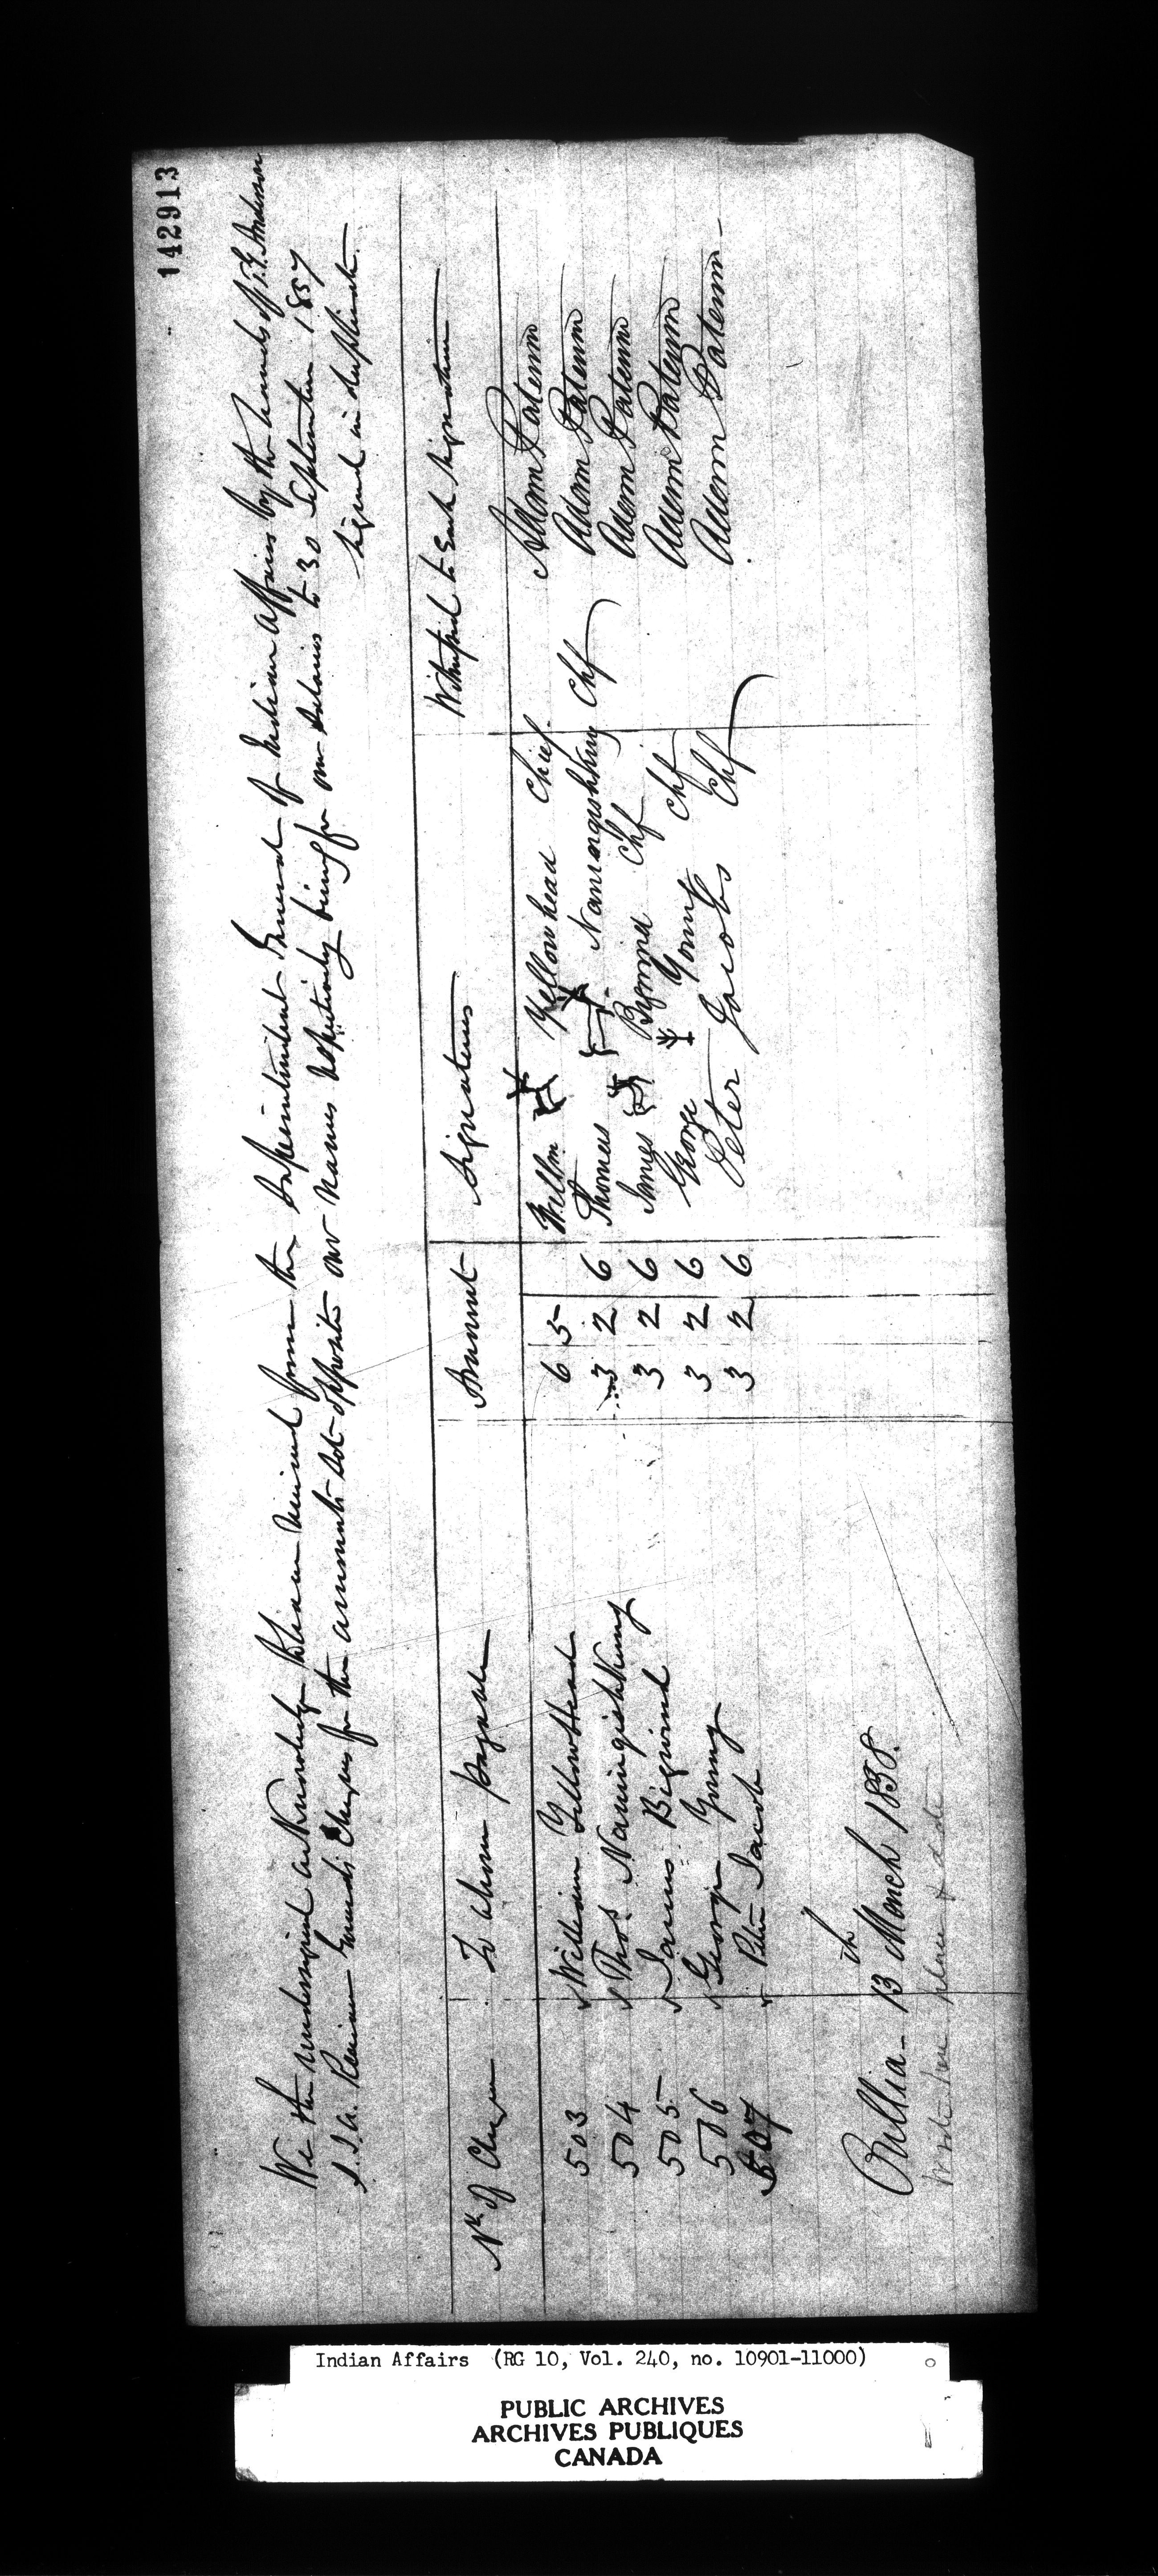 142913
We the undersigned acknowledge to have received from the Superintendent General of Indian Affairs by the hands of T. G. Anderson
S. I. A. Receiver General's Cheques for the amounts set opposite our names respectively being for our Salaries to 30 September 1857
Signed in duplicate.
No. of Cheque To whom payable Amount Signatures Witnessed to Each Signature
503 William Yellowhead 6 5 Willm Yellowhead Chief. Adam Paterson
504 Thos. Naningishkung 3 2 6 Thomas Naningishkung Chf Adam Paterson
505 James Bigwind 3 2 6 James Bigwind Chf Adam Paterson
506 George Young 3 2 6 George Young Chf Adam Paterson
507 Peter Jacob 3 2 6 Peter Jacobs Chf Adam Paterson
Orillia - 13th March 1858.
Write here place & date
Indian Affairs (RG 10, Vol. 240, no. 10901-11000)
PUBLIC ARCHIVES
ARCHIVES PUBLIQUES
CANADA